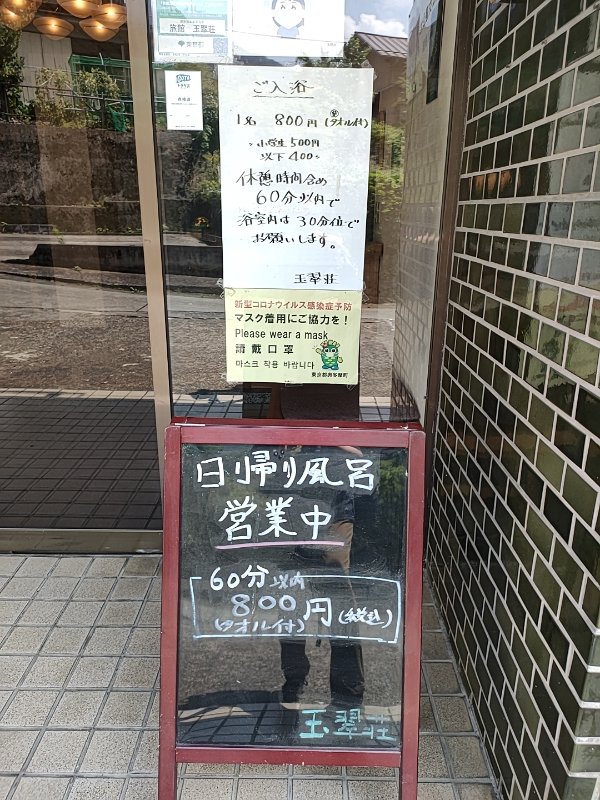 旅館 玉翠荘
ご入浴
1名 800円 (タオル付)
小学生 500円
以下 400〃
休憩時間含め
60分以内で
浴室内は30分位で
お願いします。
玉翠荘
新型コロナウイルス感染症予防
マスク着用にご協力を!
Please wear a mask
請戴口罩
마스크 착용 바랍니다
東京都奥多摩町
日帰り風呂
営業中
60分以内
800円(税込)
(タオル付)
玉翠荘